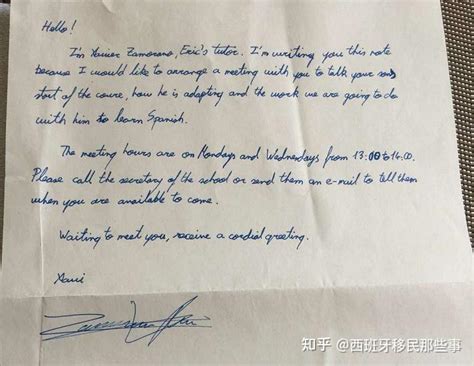 Hello!
I'm Xavier Zamorano, Eric's tutor. I'm writing you this note
because I would like to arrange a meeting with you to talk your son's
start of the course, how he is adapting and the work we are going to do
with him to learn Spanish.
The meeting hours are on Mondays and Wednesdays from 13:00 to 14:00.
Please call the secretary of the school or send them an e-mail to tell them
when you are available to come.
Waiting to meet you, receive a cordial greeting.
Xavi
知乎 @西班牙移民那些事